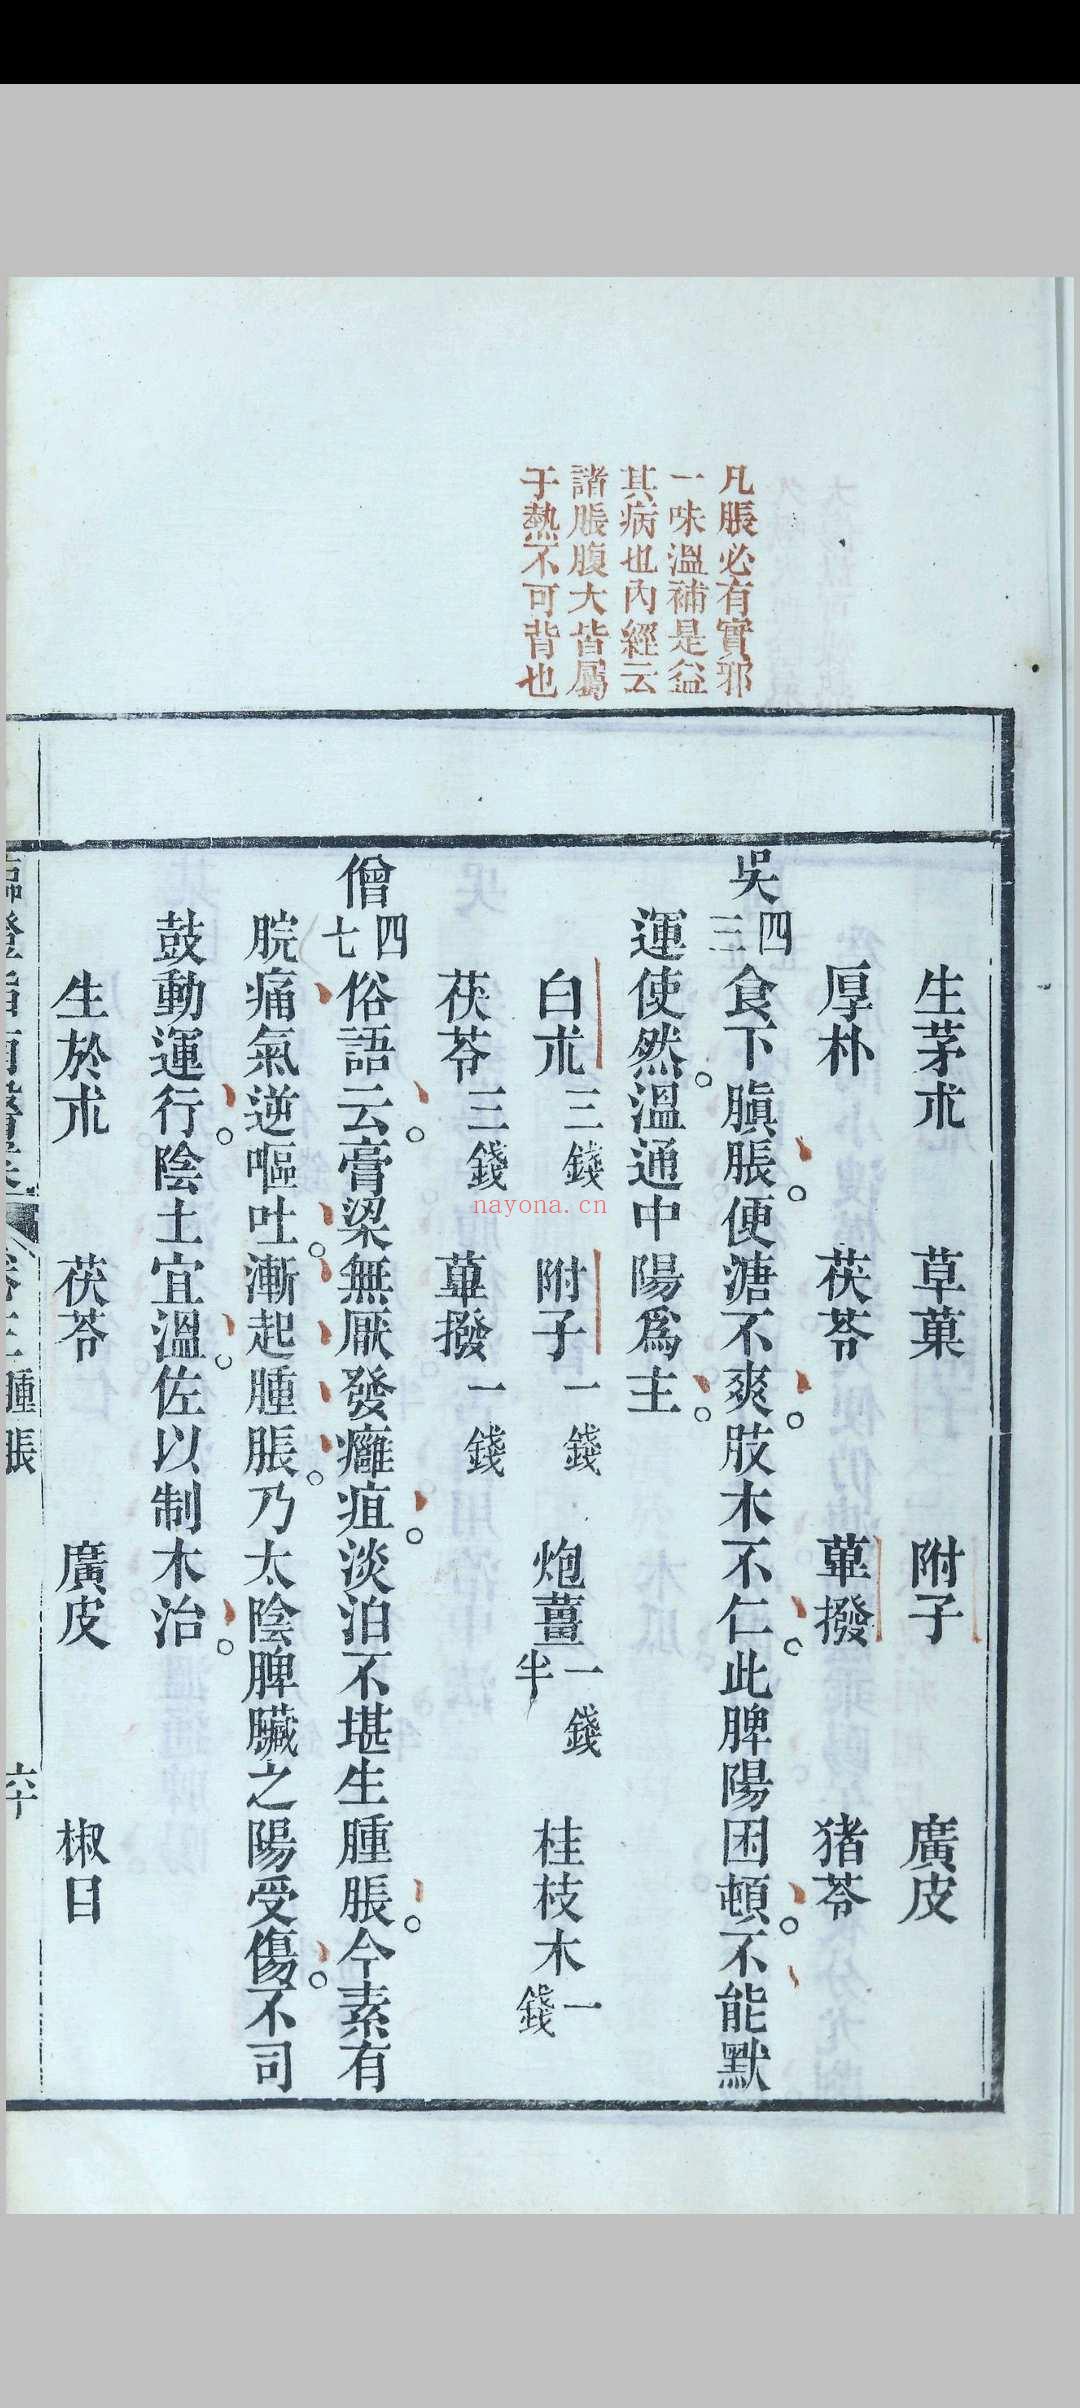 凡脹必有實邪
一味溫補是益
其病也內經云
諸脹腹大皆屬
于熱不可背也
生茅朮 草菓 附子 廣皮
厚朴 茯苓 蓽撥 猪苓
吳四三食下䐜脹便溏不爽肢木不仁此脾陽困頓不能默
運使然溫通中陽爲主
白朮三錢 附子一錢 炮薑一錢半 桂枝木一錢
茯苓三錢 蓽撥一錢
僧四七俗語云膏粱無厭發癰疽淡泊不堪生腫脹今素有
脘痛氣逆嘔吐漸起腫脹乃太陰脾臟之陽受傷不司
鼓動運行陰土宜溫佐以制木治
生於朮 茯苓 廣皮 椒目
腫脹 六十
nayona.cn